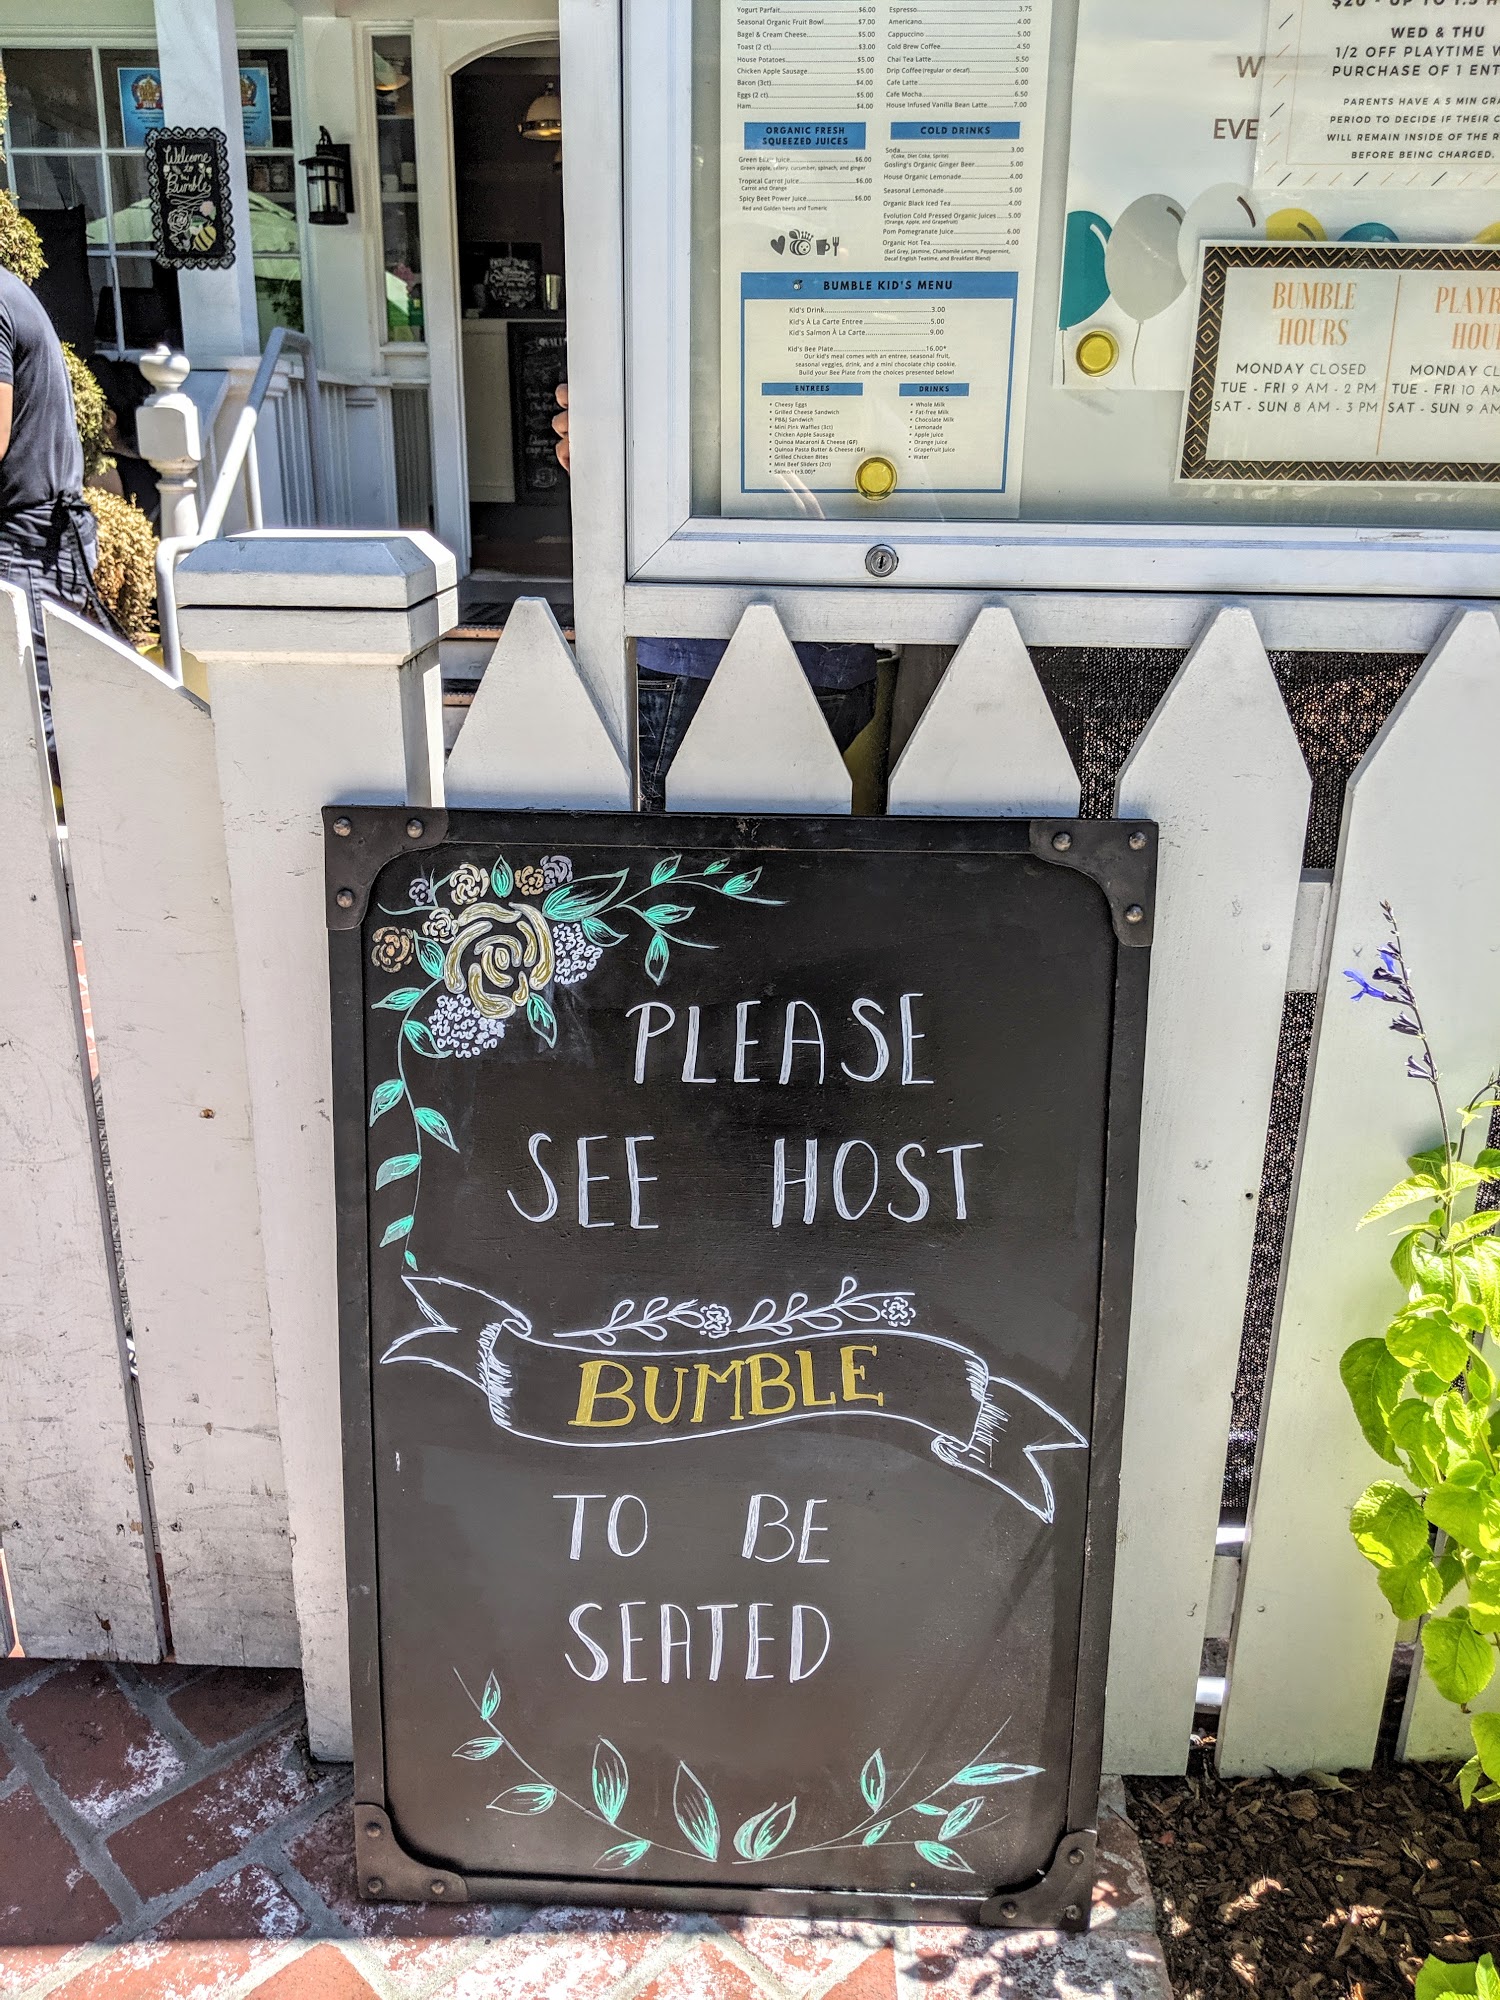 Welcome
to
Bumble
Yogurt Parfait $6.00
Seasonal Organic Fruit Bowl $7.00
Bagel & Cream Cheese $5.00
Toast (2 ct) $3.00
House Potatoes $5.00
Chicken Apple Sausage $5.00
Bacon (3ct) $4.00
Eggs (2 ct) $5.00
Ham $4.00
ORGANIC FRESH
SQUEEZED JUICES
Green Bean Juice $6.00
Green apple, celery, cucumber, spinach, and ginger
Tropical Carrot Juice $6.00
Carrot and Orange
Spicy Beet Power Juice $6.00
Red and Golden beets and Tumeric
Espresso 3.75
Americano 4.00
Cappuccino 5.00
Cold Brew Coffee 4.50
Chai Tea Latte 5.50
Drip Coffee (regular or decaf) 5.00
Cafe Latte 6.00
Cafe Mocha 6.50
House Infused Vanilla Bean Latte 7.00
COLD DRINKS
Soda 3.00
(Coke, Diet Coke, Sprite)
Gosling's Organic Ginger Beer 5.00
House Organic Lemonade 4.00
Seasonal Lemonade 5.00
Organic Black Iced Tea 4.00
Evolution Cold Pressed Organic Juices 5.00
(Orange, Apple, and Grapefruit)
Pom Pomegranate Juice 6.00
Organic Hot Tea 4.00
(Earl Grey, Jasmine, Chamomile Lemon, Peppermint,
Decaf English Teatime, and Breakfast Blend)
BUMBLE KID'S MENU
Kid's Drink 3.00
Kid's À La Carte Entree 5.00
Kid's Salmon À La Carte 9.00
Kid's Bee Plate 16.00*
Our kid's meal comes with an entree, seasonal fruit,
seasonal veggies, drink, and a mini chocolate chip cookie.
Build your Bee Plate from the choices presented below!
ENTREES
• Cheesy Eggs
• Grilled Cheese Sandwich
• PB&J Sandwich
• Mini Pink Waffles (3ct)
• Chicken Apple Sausage
• Quinoa Macaroni & Cheese (GF)
• Quinoa Pasta Butter & Cheese (GF)
• Grilled Chicken Bites
• Mini Beef Sliders (2ct)
• Salmon (+3.00)*
DRINKS
• Whole Milk
• Fat-free Milk
• Chocolate Milk
• Lemonade
• Apple Juice
• Orange Juice
• Grapefruit Juice
• Water
W
EVE
$20 - UP TO 1.5 H
WED & THU
1/2 OFF PLAYTIME W
PURCHASE OF 1 ENT
PARENTS HAVE A 5 MIN GRA
PERIOD TO DECIDE IF THEIR C
WILL REMAIN INSIDE OF THE R
BEFORE BEING CHARGED.
BUMBLE
HOURS
MONDAY CLOSED
TUE - FRI 9 AM - 2 PM
SAT - SUN 8 AM - 3 PM
PLAYR
HOU
MONDAY CL
TUE - FRI 10 AM
SAT - SUN 9 AM
PLEASE
SEE HOST
BUMBLE
TO BE
SEATED